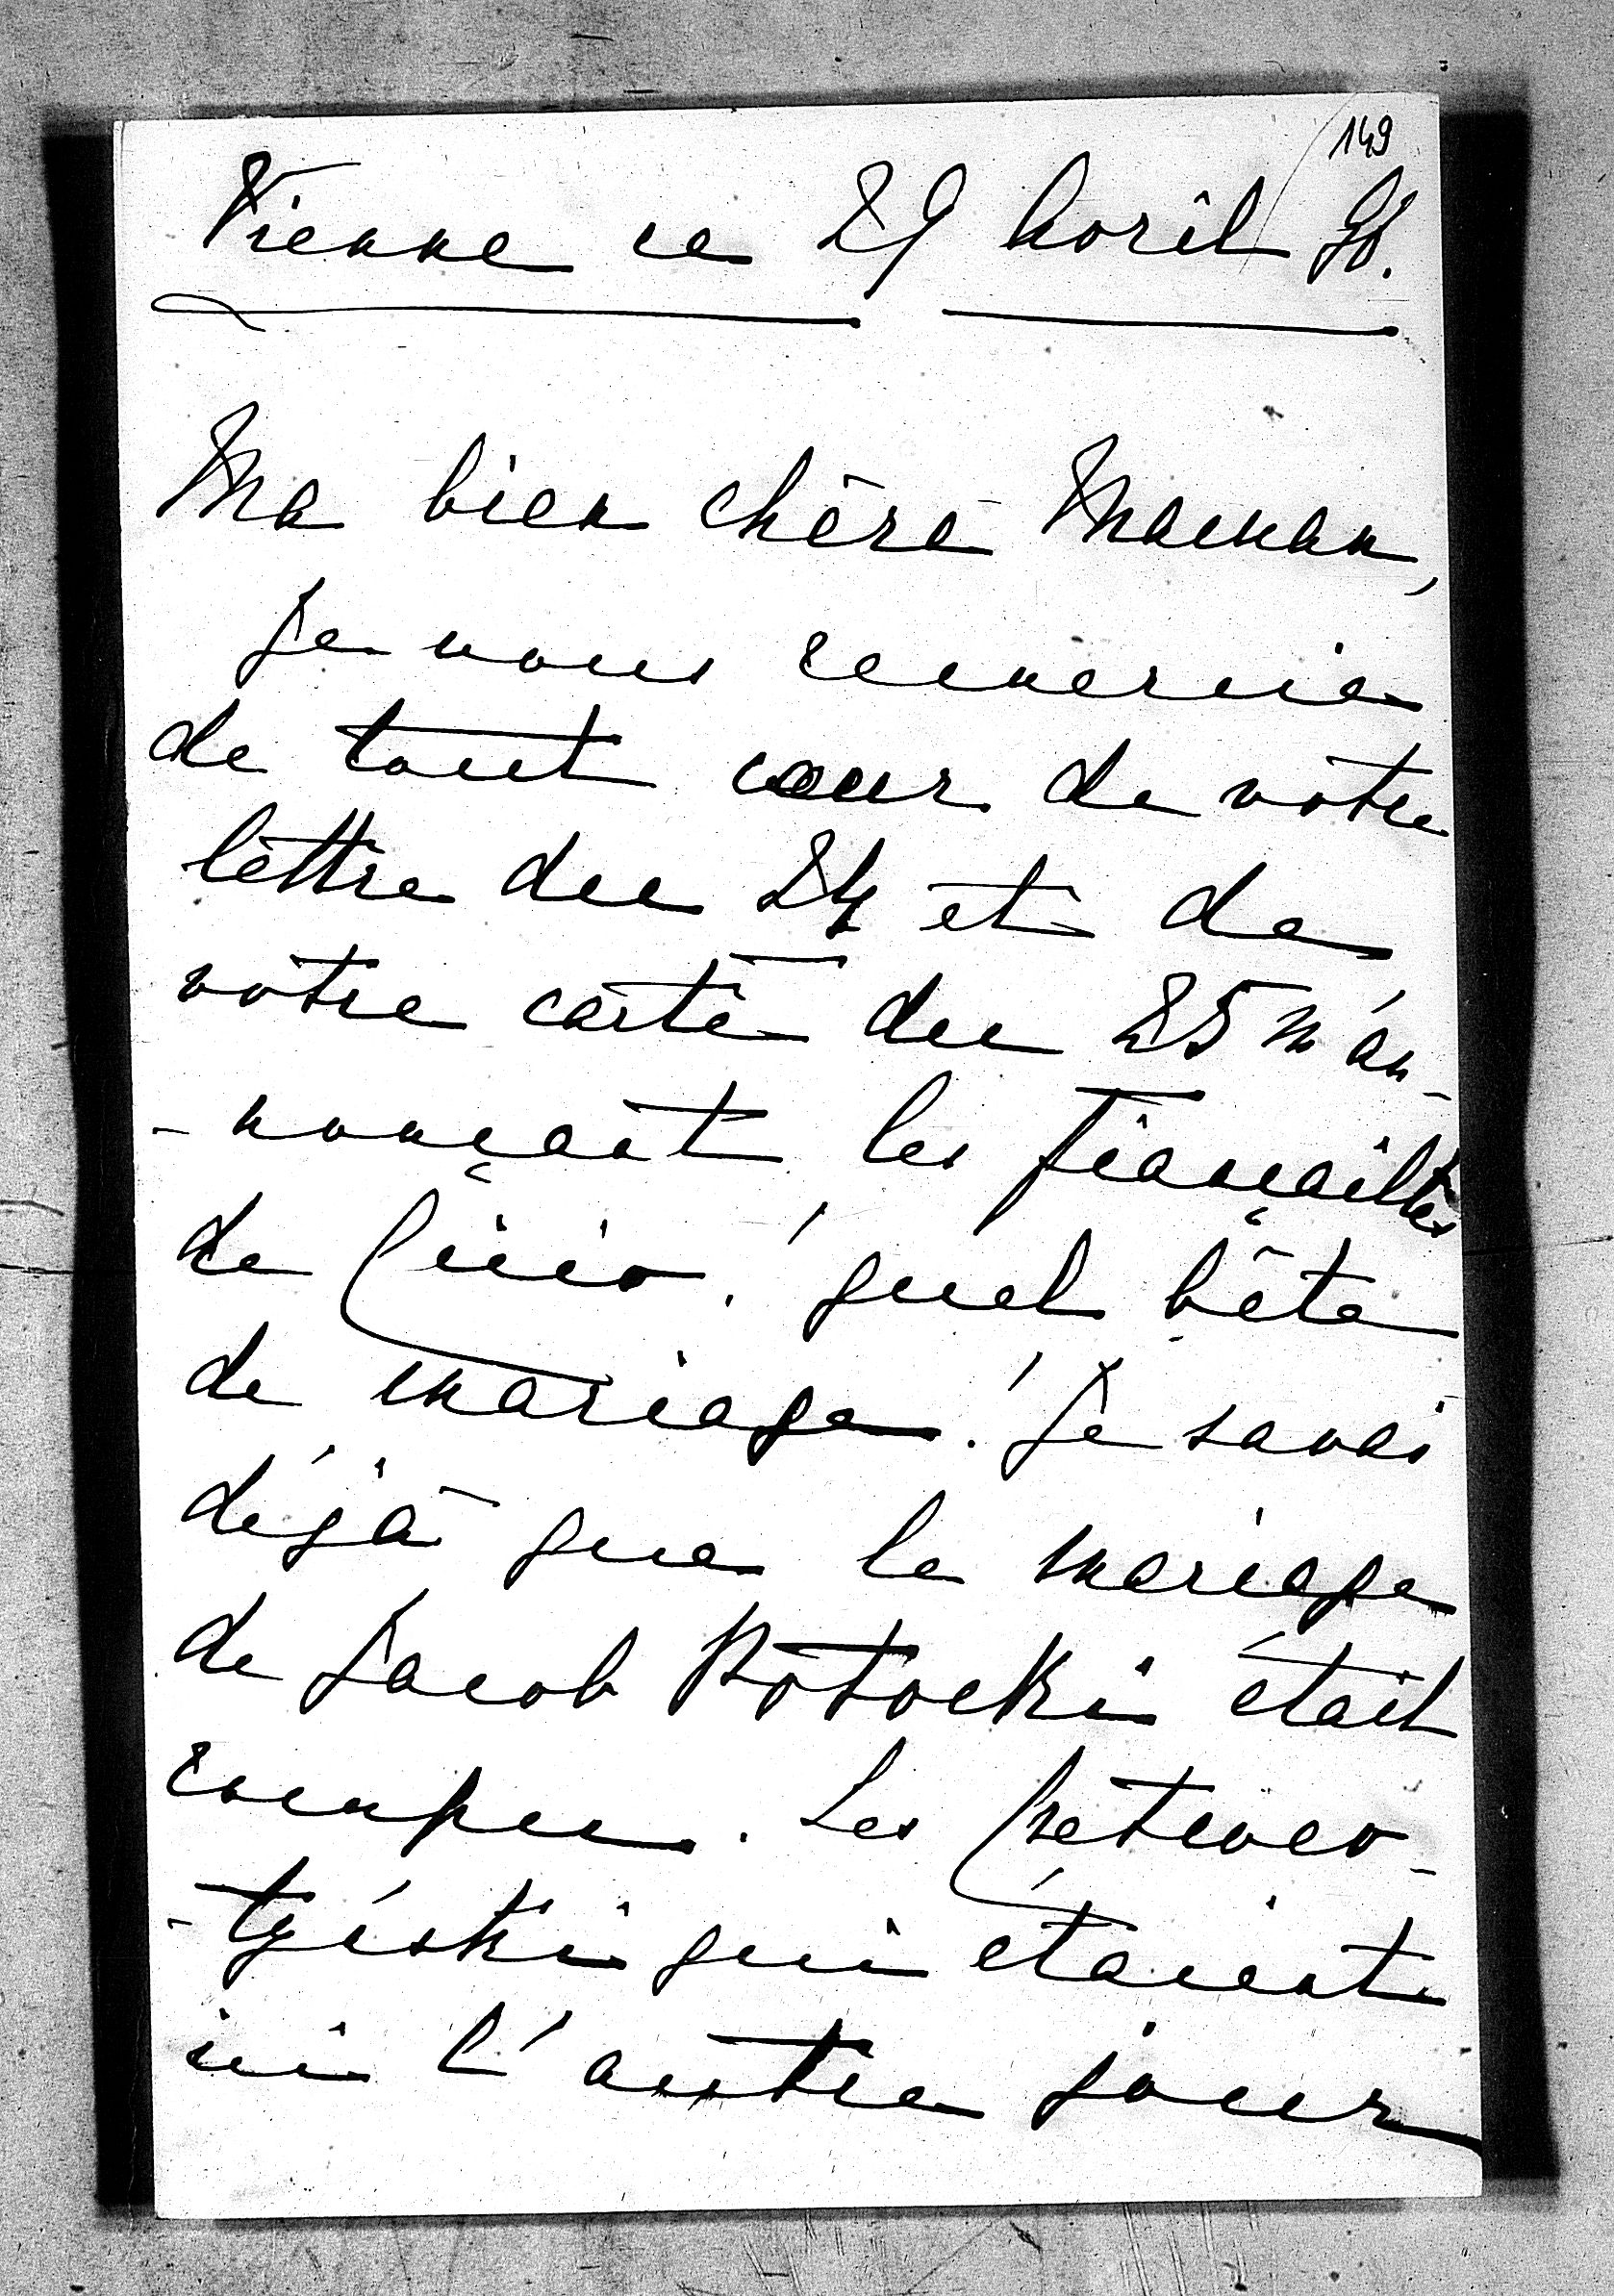 149
Vienne ce 29 Avril 98.
Ma bien chère Maman,
Je vous remercie
de tout coeur de votre
lettre du 24 et de
votre carte du 25 m'an-
-nonçant les fiançailles
de ! quel bête
de mariage! Je savai
déjà que le mariage
de Jacob Potocki était
rompu. Les
qui étaient
ici l'autre jour